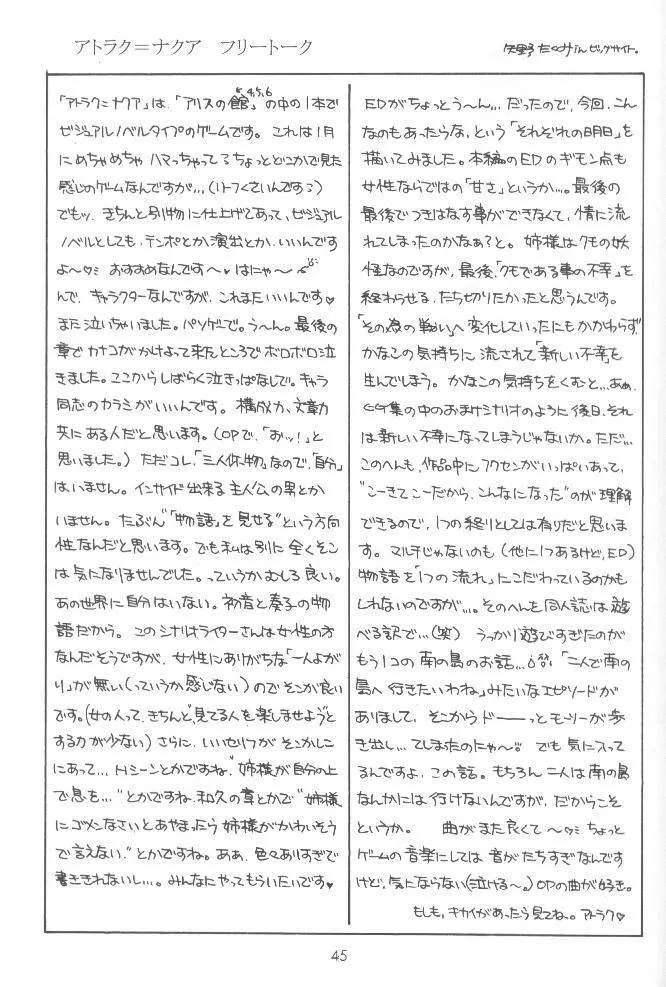 アトラク＝ナクア　フリートーク
矢野たくみinビッグサイト。
「アトラク＝ナクア」は、「アリスの館4,5,6」の中の1本で
ビジュアルノベルタイプのゲームです。これは1月
にめちゃめちゃハマっちゃってるちょっとどこかで見た
感じのゲームなんですが…(リーフくさいんです?)
でもッ、きちんと別物に仕上げてあって、ビジュアル
ノベルとしても、テンポとか演出とか、いいんです
よ〜♡ おすすめなんです〜♥はにゃ〜
んで、キャラクターなんですが、これまたいいんです♥
また泣いちゃいました。パソゲで。う〜ん。最後の
章でカナコがかけよって来たところでボロボロ泣
きました。ここからしばらく泣きっぱなしで。キャラ
同志のカラミがいいんです。構成力、文章力
共にある人だと思います。(OPで、「おッ!」と
思いました。)ただコレ、「三人体物」なので、「自分」
はいません。インサイド出来る主人公の男とか
いません。たぶん"「物語」を見せる"という方向
性なんだと思います。でも私は別に全くそこ
は気になりませんでした。っていうかむしろ良い。
あの世界に自分はいない。初音と奏子の物
語だから。このシナリオライターさんは女性の方
なんだそうですが、女性にありがちな「一人よが
り」が無い(っていうか感じない)のでそこが良い
です。(女の人って、きちんと"見てる人を楽しませよう"と
する力が少ない)さらに、いいセリフがそこかしこ
にあって…Hシーンとかですね。"姉様が自分の上
で息を…"とかですね、和久の章とかで"姉様
にゴメンなさいとあやまったら姉様がかわいそう
で言えない。"とかですね。ああ、色々ありすぎで
書ききれないし…。みんなにやってもらいたいです♥
EDがちょっとう〜ん…だったので、今回、こん
なのもあったらな、という「それぞれの明日」を
描いてみました。本編のEDのギモン点も
女性ならではの「甘さ」というか…。最後の
最後でつきはなす事ができなくて、情に流
れてしまったのかなぁ?と。姉様はクモの妖
怪なのですが、最後、「クモである事の不幸」を
終わらせる、たち切りたかったと思うんです。
「その為の戦い」へ変化していったにもかかわらず、
かなこの気持ちに流されて「新しい不幸」を
生んでしまう。かなこの気持ちをくむと…あぁ。
CG集の中のおまけシナリオのように後日、それ
は新しい不幸になってしまうじゃないか。ただ…
このへんも、作品中にフクセンがいっぱいあって、
"こーきてこーだから、こんなになった"のが理解
できるので、1つの終りとしては有りだと思いま
す。マルチじゃないのも(他に1つあるけど、ED)
物語を「1つの流れ」にこだわっているのかも
しれないのですが…。そのへんを同人誌は遊
べる訳で…(笑)　うっかり遊びすぎたのが
もう1コの南の島のお話…「二人で南の
島へ行きたいわね」みたいなエピソードが
ありまして、そこからドーーーっとモーリーが歩
き出し…てしまったのにゃ〜 でも気に入って
るんですよ、この話。もちろん二人は南の島
なんかには行けないんですが、だからこそ
というか。　曲がまた良くて〜♡ちょっと
ゲームの音楽にしては音がたちすぎなんです
けど、気にならない(泣ける〜。)OPの曲が好き。
もしも、キカイがあったら見てね。アトラク♡
45